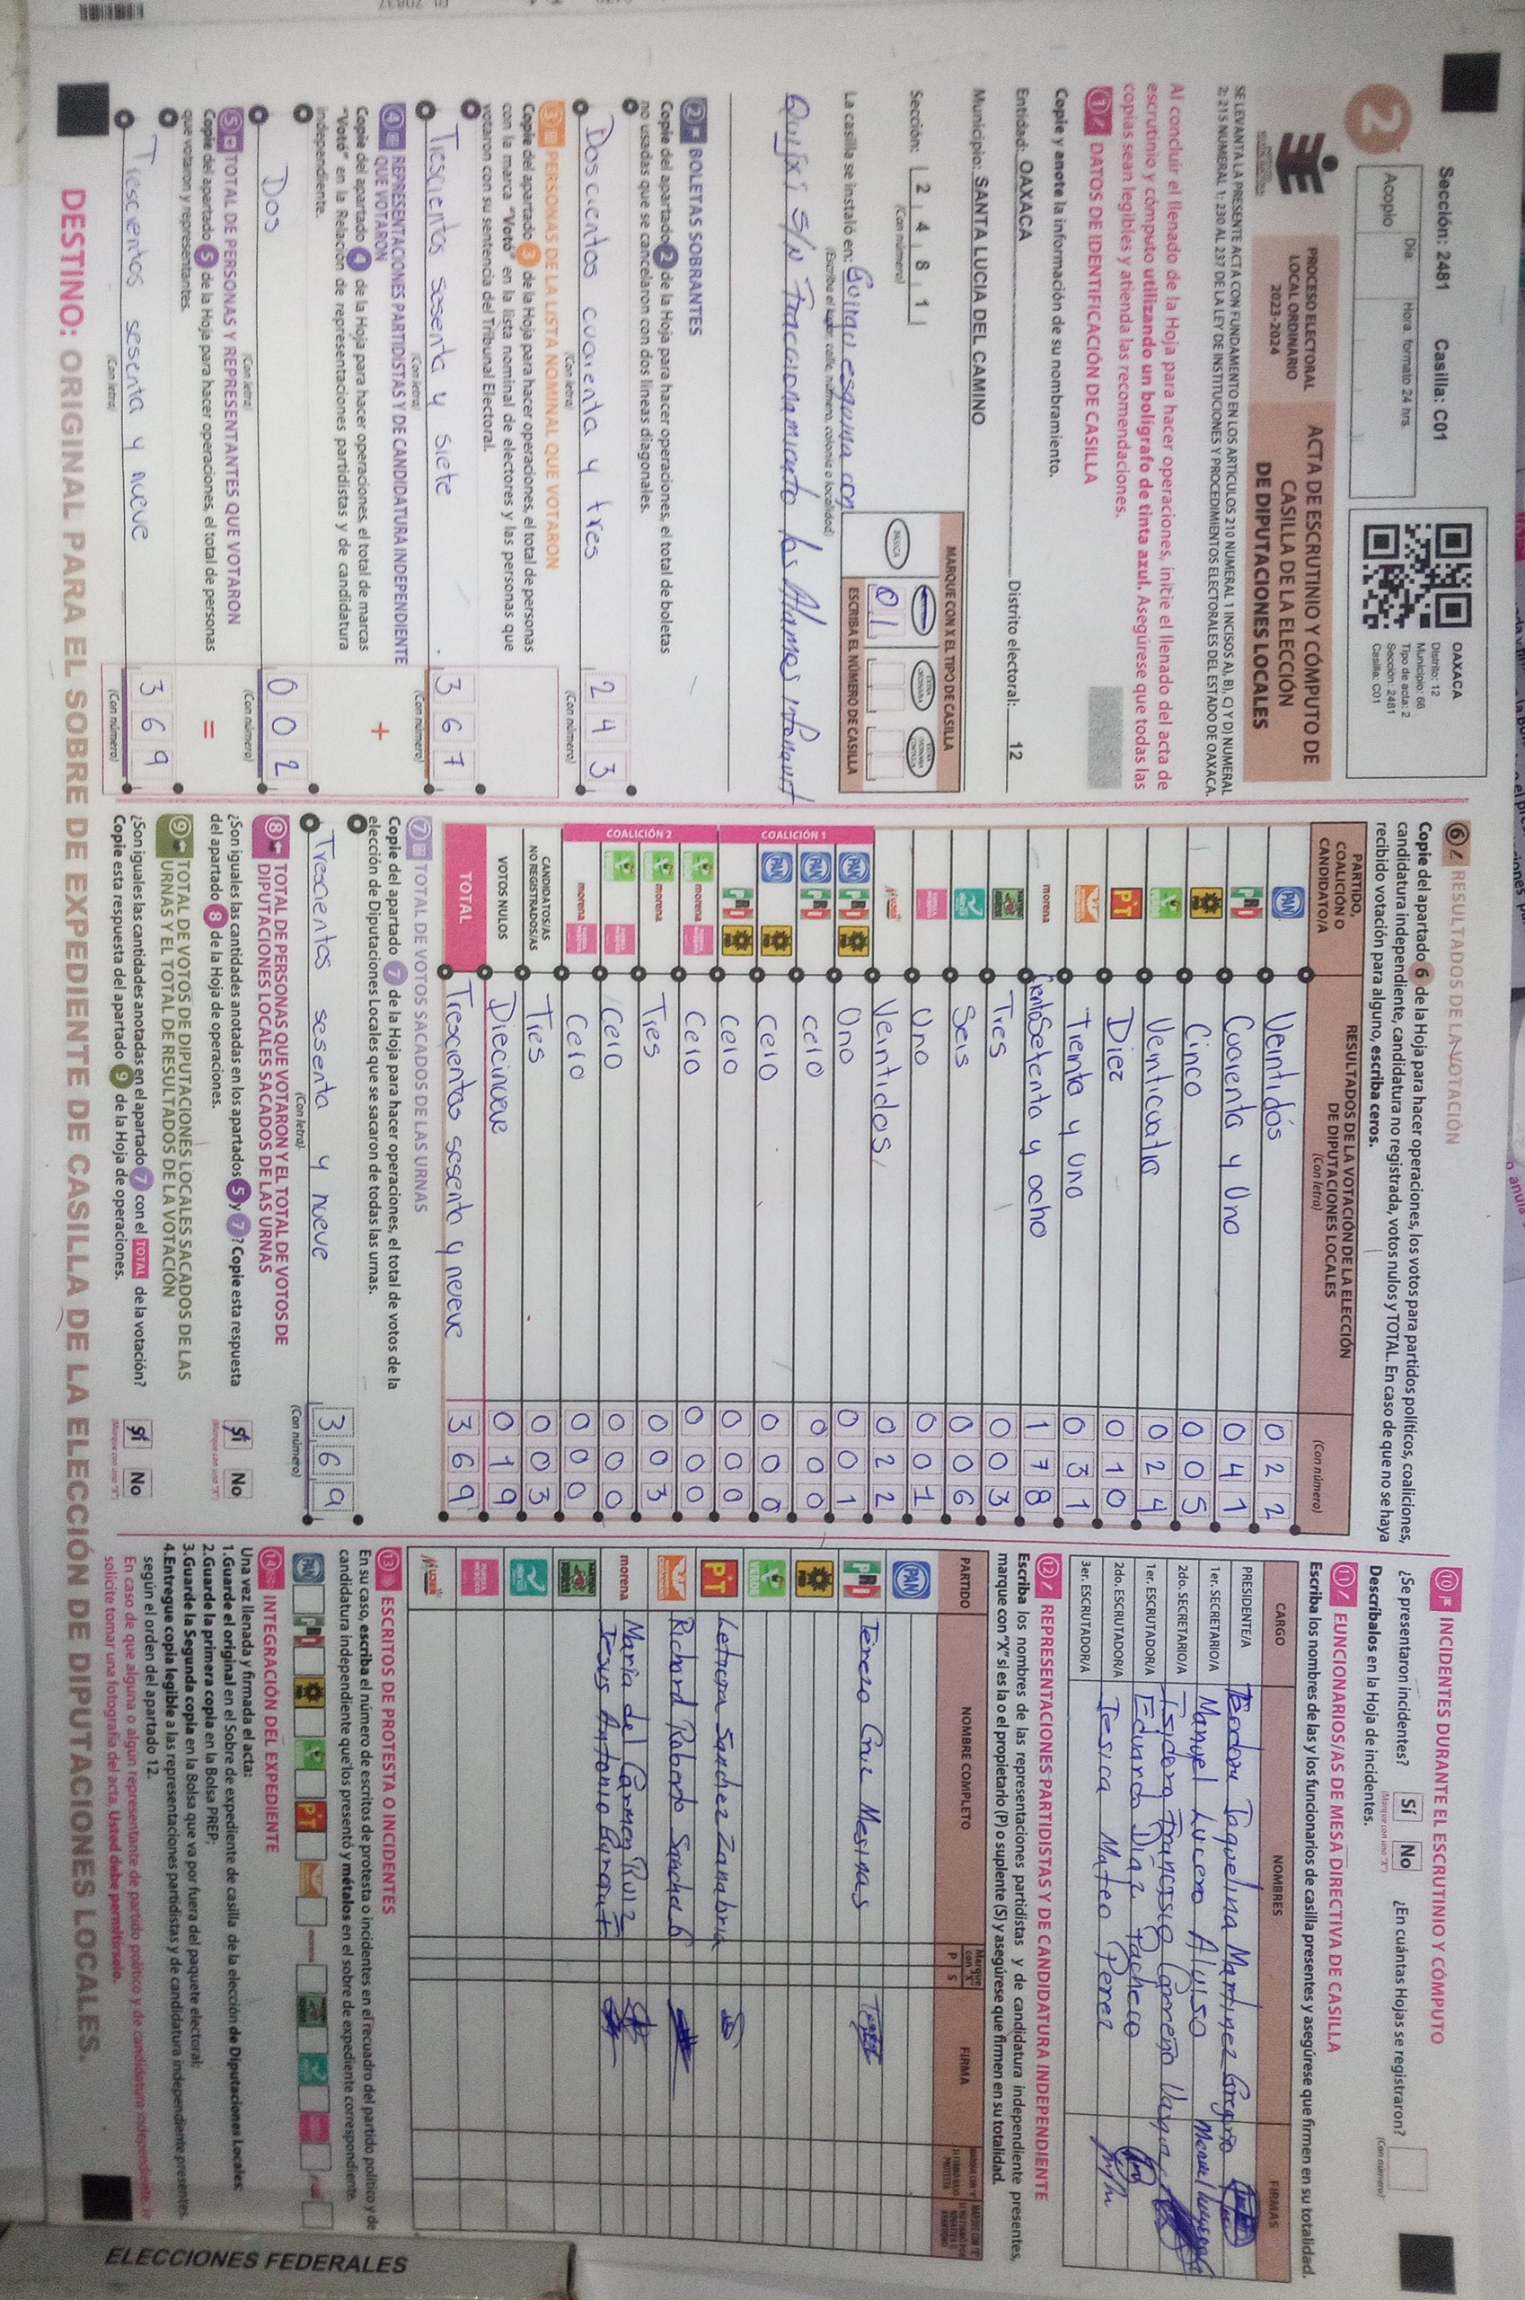 Sección: 2481 Casilla: C01
2
Día: Hora formato 24 hrs.
Acopio
OAXACA
Distrito: 12
Municipio: 66
Tipo de acta: 2
Sección: 2481
Casilla: C01
PROCESO ELECTORAL
LOCAL ORDINARIO
2023-2024
ACTA DE ESCRUTINIO Y CÓMPUTO DE
CASILLA DE LA ELECCIÓN
DE DIPUTACIONES LOCALES
SE LEVANTA LA PRESENTE ACTA CON FUNDAMENTO EN LOS ARTÍCULOS 210 NUMERAL 1 INCISOS A), B), C) Y D) NUMERAL
2; 215 NUMERAL 1; 230 AL 237 DE LA LEY DE INSTITUCIONES Y PROCEDIMIENTOS ELECTORALES DEL ESTADO DE OAXACA.
Al concluir el llenado de la Hoja para hacer operaciones, inicie el llenado del acta de
escrutinio y cómputo utilizando un bolígrafo de tinta azul. Asegúrese que todas las
copias sean legibles y atienda las recomendaciones.
1 DATOS DE IDENTIFICACIÓN DE CASILLA
Copie y anote la información de su nombramiento.
Entidad: OAXACA Distrito electoral: 12
Municipio: SANTA LUCIA DEL CAMINO
Sección: 2 4 8 1
(Con número)
MARQUE CON X EL TIPO DE CASILLA
BÁSICA
ESCRIBA EL NÚMERO DE CASILLA
01
La casilla se instaló en: esquina con
(Escriba el lugar, calle, número, colonia o localidad)
Quijxi S/N Fraccionamiento los Alamos Infonavit
2 BOLETAS SOBRANTES
Copie del apartado 2 de la Hoja para hacer operaciones, el total de boletas
no usadas que se cancelaron con dos líneas diagonales.
Doscientos cuarenta y tres 2 4 3
(Con letra) (Con número)
3 PERSONAS DE LA LISTA NOMINAL QUE VOTARON
Copie del apartado 3 de la Hoja para hacer operaciones, el total de personas
con la marca "Votó" en la lista nominal de electores y las personas que
votaron con su sentencia del Tribunal Electoral.
Trescientos sesenta y siete 3 6 7
(Con letra) (Con número)
4 REPRESENTACIONES PARTIDISTAS Y DE CANDIDATURA INDEPENDIENTE
QUE VOTARON
Copie del apartado 4 de la Hoja para hacer operaciones, el total de marcas
"Votó" en la Relación de representaciones partidistas y de candidatura
independiente.
+
Dos 0 0 2
(Con letra) (Con número)
5 TOTAL DE PERSONAS Y REPRESENTANTES QUE VOTARON
Copie del apartado 5 de la Hoja para hacer operaciones, el total de personas
que votaron y representantes.
=
Trescientos sesenta y nueve 3 6 9
(Con letra) (Con número)
6 RESULTADOS DE LA VOTACIÓN
Copie del apartado 6 de la Hoja para hacer operaciones, los votos para partidos políticos, coaliciones,
candidatura independiente, candidatura no registrada, votos nulos y TOTAL. En caso de que no se haya
recibido votación para alguno, escriba ceros.
PARTIDO, COALICIÓN O CANDIDATO/A
RESULTADOS DE LA VOTACIÓN DE LA ELECCIÓN DE DIPUTACIONES LOCALES
(Con letra) (Con número)
PAN Veintidós 0 2 2
PRI Cuarenta y Uno 0 4 1
PRD Cinco 0 0 5
VERDE Veinticuatro 0 2 4
PT Diez 0 1 0
Treinta y uno 0 3 1
morena Ciento Setenta y ocho 1 7 8
Tres 0 0 3
Seis 0 0 6
Uno 0 0 1
Mujer Veintidos 0 2 2
COALICIÓN 1
PAN PRI PRD Uno 0 0 1
PAN PRI cero 0 0 0
PAN PRD cero 0 0 0
PRI PRD cero 0 0 0
COALICIÓN 2
VERDE morena Cero 0 0 0
VERDE morena Tres 0 0 3
VERDE Cero 0 0 0
morena Cero 0 0 0
CANDIDATOS/AS NO REGISTRADOS/AS Tres 0 0 3
VOTOS NULOS Diecinueve 0 1 9
TOTAL Trescientos sesenta y nueve 3 6 9
7 TOTAL DE VOTOS SACADOS DE LAS URNAS
Copie del apartado 7 de la Hoja para hacer operaciones, el total de votos de la
elección de Diputaciones Locales que se sacaron de todas las urnas.
Trescientos sesenta y nueve 3 6 9
(Con letra) (Con número)
8 TOTAL DE PERSONAS QUE VOTARON Y EL TOTAL DE VOTOS DE
DIPUTACIONES LOCALES SACADOS DE LAS URNAS
¿Son iguales las cantidades anotadas en los apartados 5 y 7? Copie esta respuesta
del apartado 8 de la Hoja de operaciones.
Sí No
(Marque con una "X")
9 TOTAL DE VOTOS DE DIPUTACIONES LOCALES SACADOS DE LAS
URNAS Y EL TOTAL DE RESULTADOS DE LA VOTACIÓN
¿Son iguales las cantidades anotadas en el apartado 7 con el TOTAL de la votación?
Copie esta respuesta del apartado 9 de la Hoja de operaciones.
Sí No
(Marque con una "X")
10 INCIDENTES DURANTE EL ESCRUTINIO Y CÓMPUTO
¿Se presentaron incidentes? Sí No ¿En cuántas Hojas se registraron?
(Marque con una "X") (Con número)
Descríbalos en la Hoja de incidentes.
11 FUNCIONARIOS/AS DE MESA DIRECTIVA DE CASILLA
Escriba los nombres de las y los funcionarios de casilla presentes y asegúrese que firmen en su totalidad.
CARGO NOMBRES FIRMAS
PRESIDENTE/A Teodora Jaquelina Martinez Gregorio
1er. SECRETARIO/A Manuel Lucero Aluiso
2do. SECRETARIO/A Isidora Carreño
1er. ESCRUTADOR/A Eduardo Díaz Pacheco
2do. ESCRUTADOR/A Jesica Mateo Perez
3er. ESCRUTADOR/A
12 REPRESENTACIONES PARTIDISTAS Y DE CANDIDATURA INDEPENDIENTE
Escriba los nombres de las representaciones partidistas y de candidatura independiente presentes,
marque con "X" si es la o el propietario (P) o suplente (S) y asegúrese que firmen en su totalidad.
PARTIDO NOMBRE COMPLETO Marque con "X" P S FIRMA
PAN
PRI Cruz Mesinas
PRD
VERDE
PT Leticia Sanchez Zanabria
Richard Roberto
morena Maria del Carmen Ruiz
Jesus Antonio
Mujer
13 ESCRITOS DE PROTESTA O INCIDENTES
En su caso, escriba el número de escritos de protesta o incidentes en el recuadro del partido político y de
candidatura independiente que los presentó y métalos en el sobre de expediente correspondiente.
PAN PRI PRD VERDE PT morena
14 INTEGRACIÓN DEL EXPEDIENTE
Una vez llenada y firmada el acta:
1.Guarde el original en el Sobre de expediente de casilla de la elección de Diputaciones Locales;
2.Guarde la primera copia en la Bolsa PREP;
3.Guarde la Segunda copia en la Bolsa que va por fuera del paquete electoral;
4.Entregue copia legible a las representaciones partidistas y de candidatura independiente presentes,
según el orden del apartado 12.
En caso de que alguna o algún representante de partido político y de candidatura independiente, le
solicite tomar una fotografía del acta, Usted debe permitírselo.
DESTINO: ORIGINAL PARA EL SOBRE DE EXPEDIENTE DE CASILLA DE LA ELECCIÓN DE DIPUTACIONES LOCALES.
ELECCIONES FEDERALES